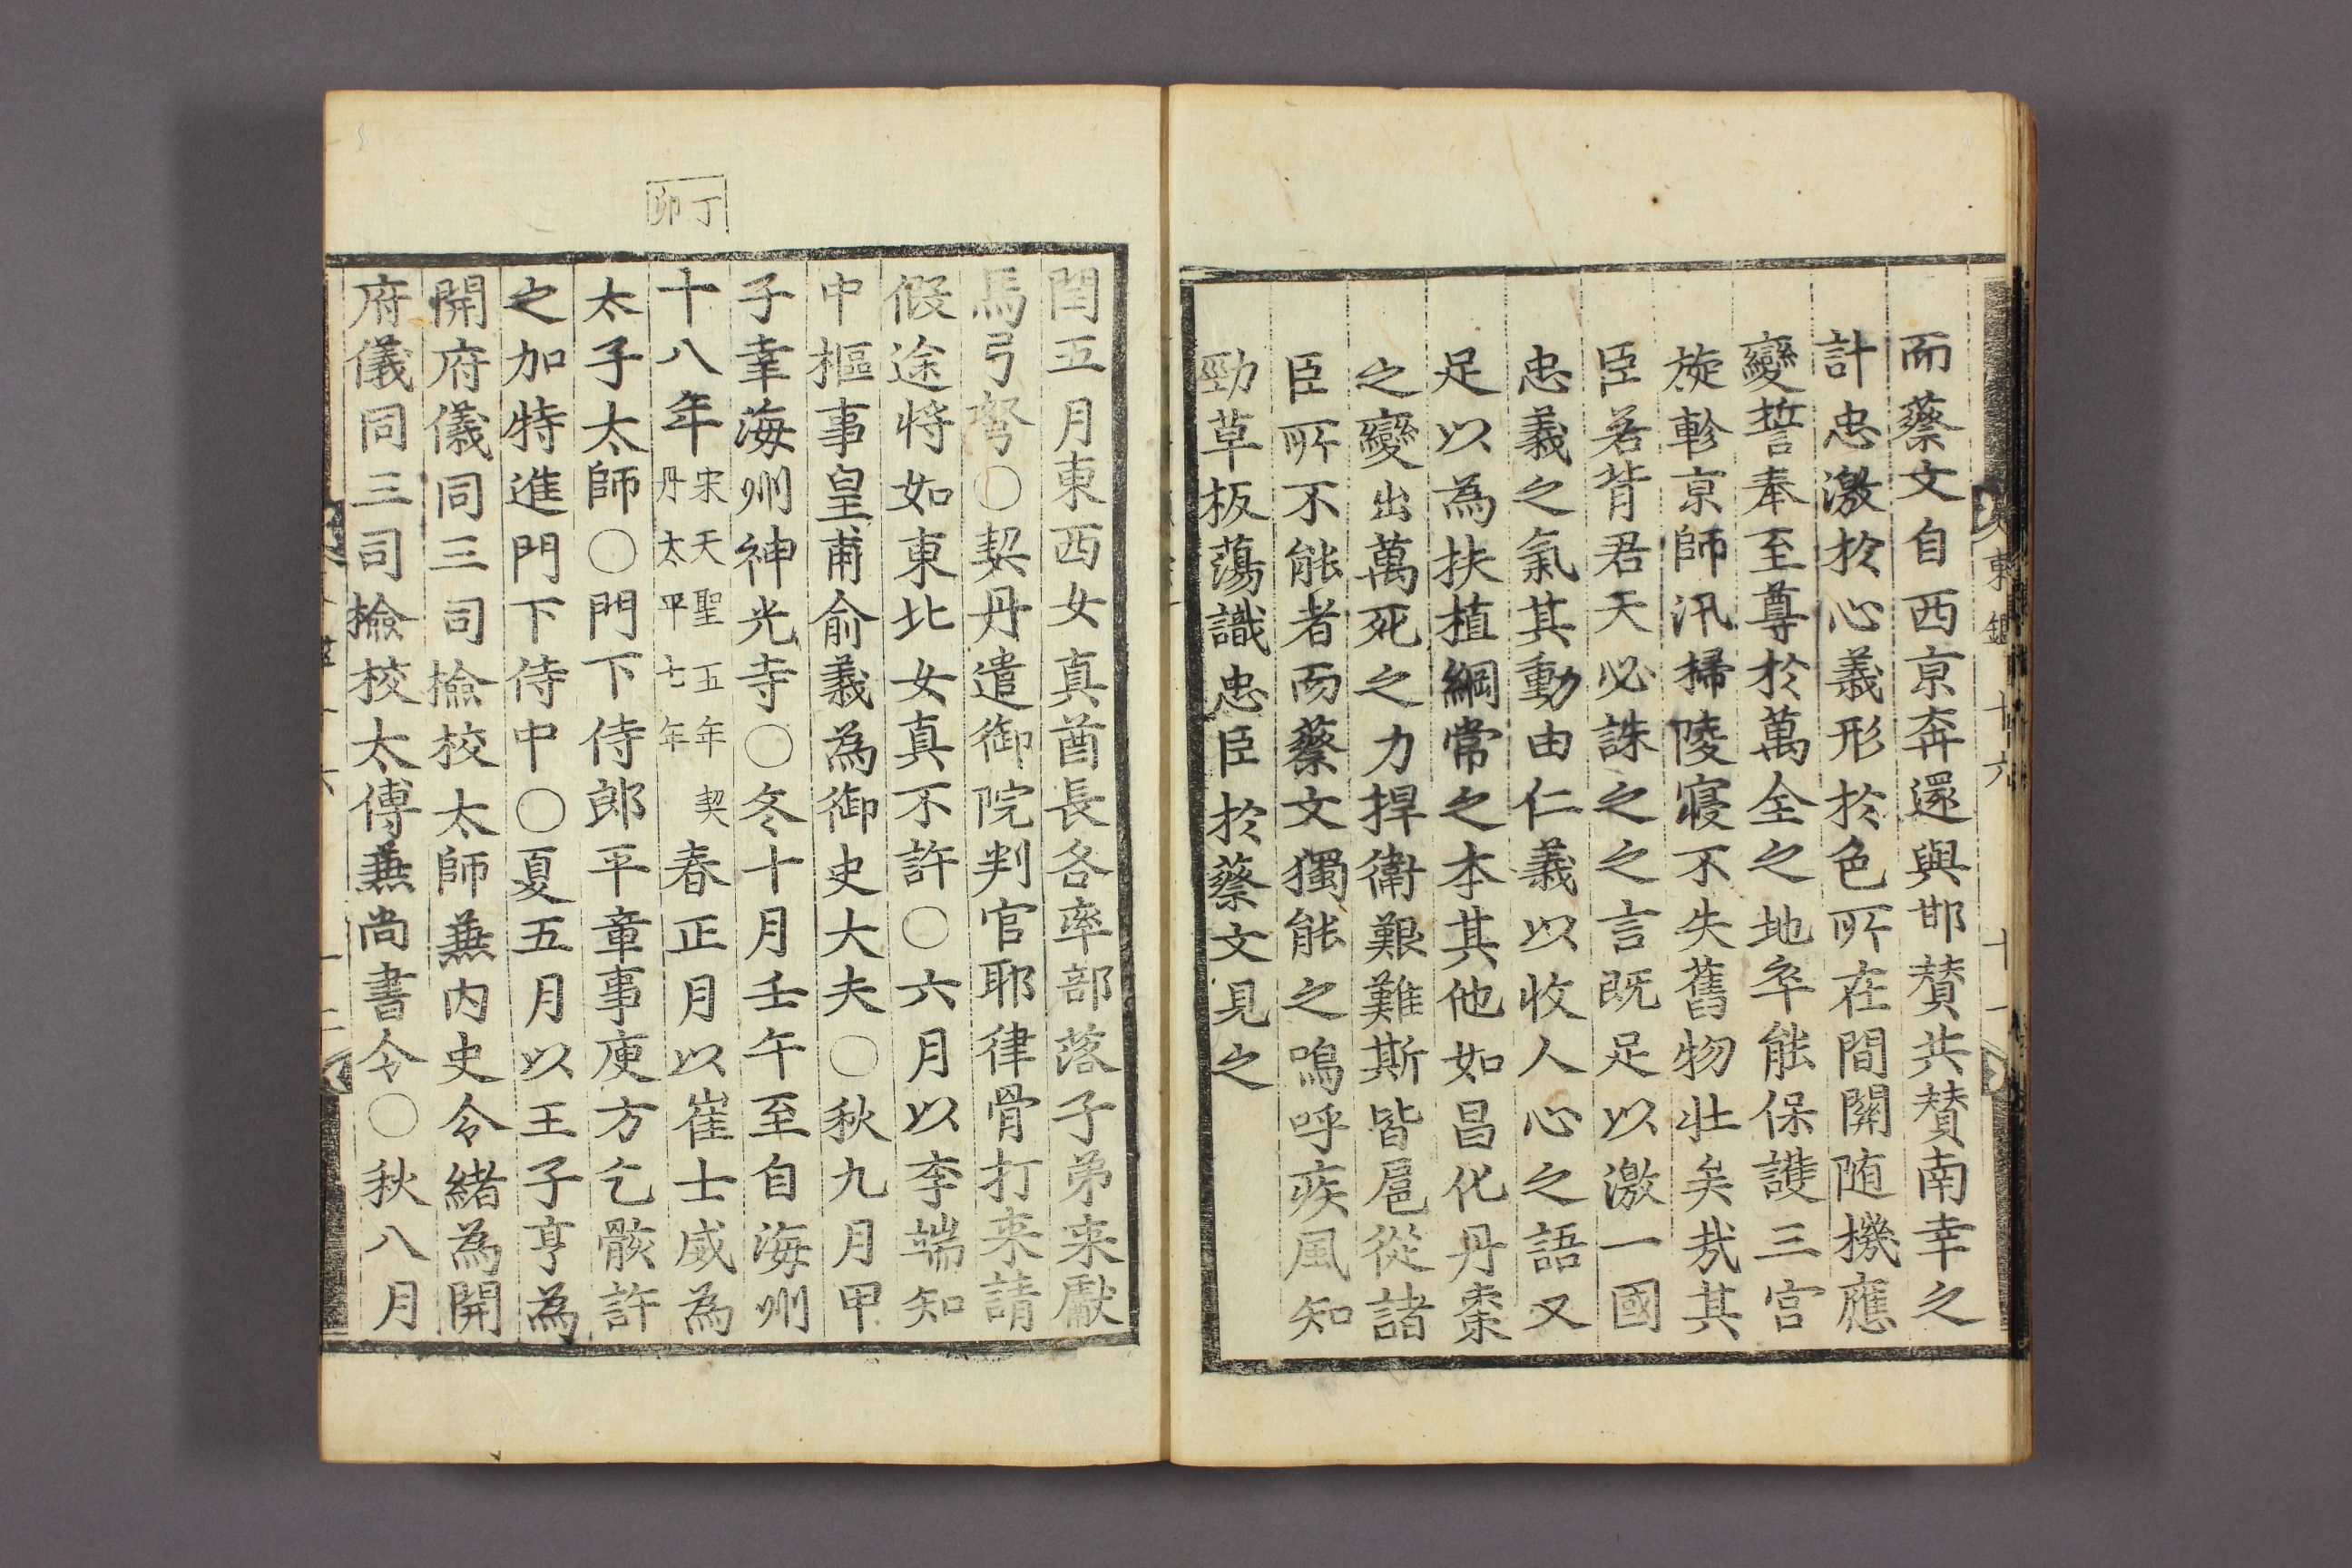 而蔡文自西京奔還與邯賛共賛南幸之
計忠激於心義形於色所在間關随機應
變誓奉至尊於萬全之地卒能保護三宫
旋軫京師汛掃陵寢不失舊物壮矣㢤其
臣若背君天必誅之之言既足以激一國
忠義之氣其動由仁義以收人心之語又
足以為扶植綱常之本其他如昌化丹棗
之變出萬死之力捍衛艱難斯皆扈從諸
臣所不能者而蔡文獨能之嗚呼疾風知
勁草板蕩識忠臣於蔡文見之
東鑑 十六 十一
丁卯
閏五月東西女真酋長各率部落子弟来獻
馬弓弩○契丹遣御院判官耶律骨打来請
假途將如東北女真不許○六月以李端知
中樞事皇甫俞義為御史大夫○秋九月甲
子幸海州神光寺○冬十月壬午至自海州
十八年宋天聖五年契丹太平七年春正月以崔士威為
太子太師○門下侍郎平章事庾方乞骸許
之加特進門下侍中○夏五月以王子亨為
開府儀同三司撿校太師兼内史令緒為開
府儀同三司撿校太傅兼尚書令○秋八月